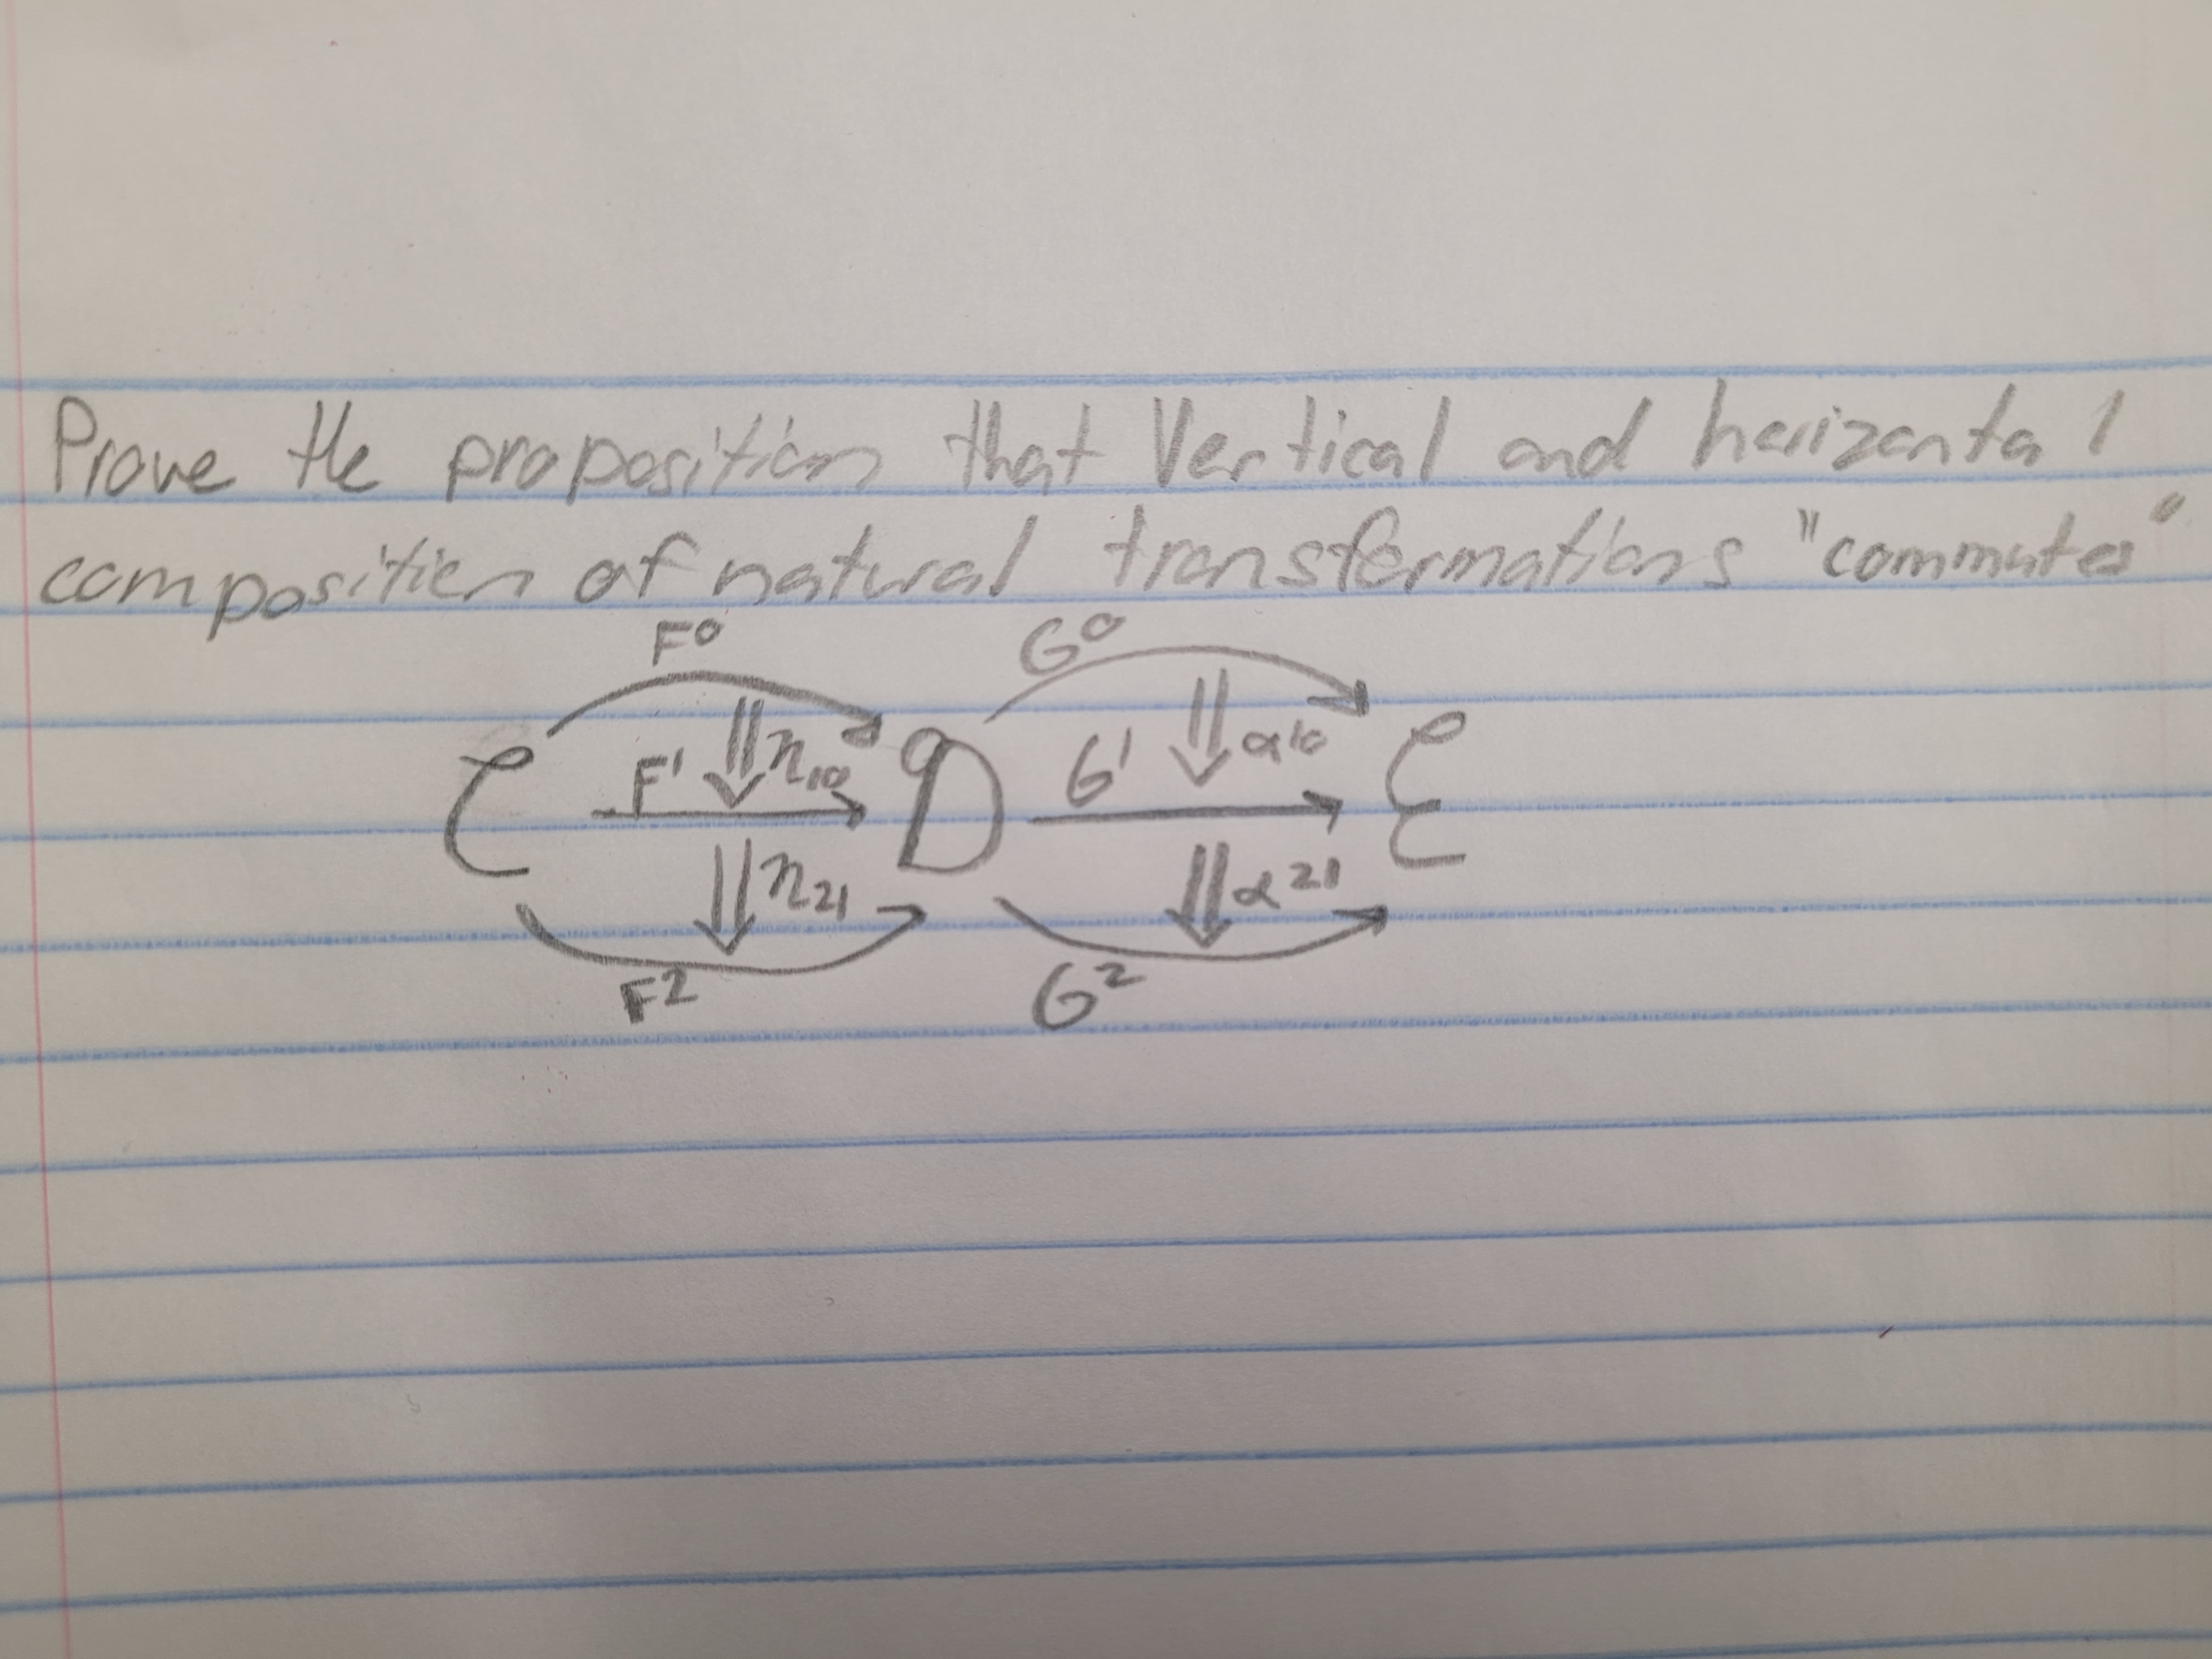 Prove the proposition that Vertical and horizontal
composition of natural transformations "commutes"
F⁰ G⁰
C F¹ η₁₀ D G¹ α¹⁰ E
η₂₁ α²¹
F² G²